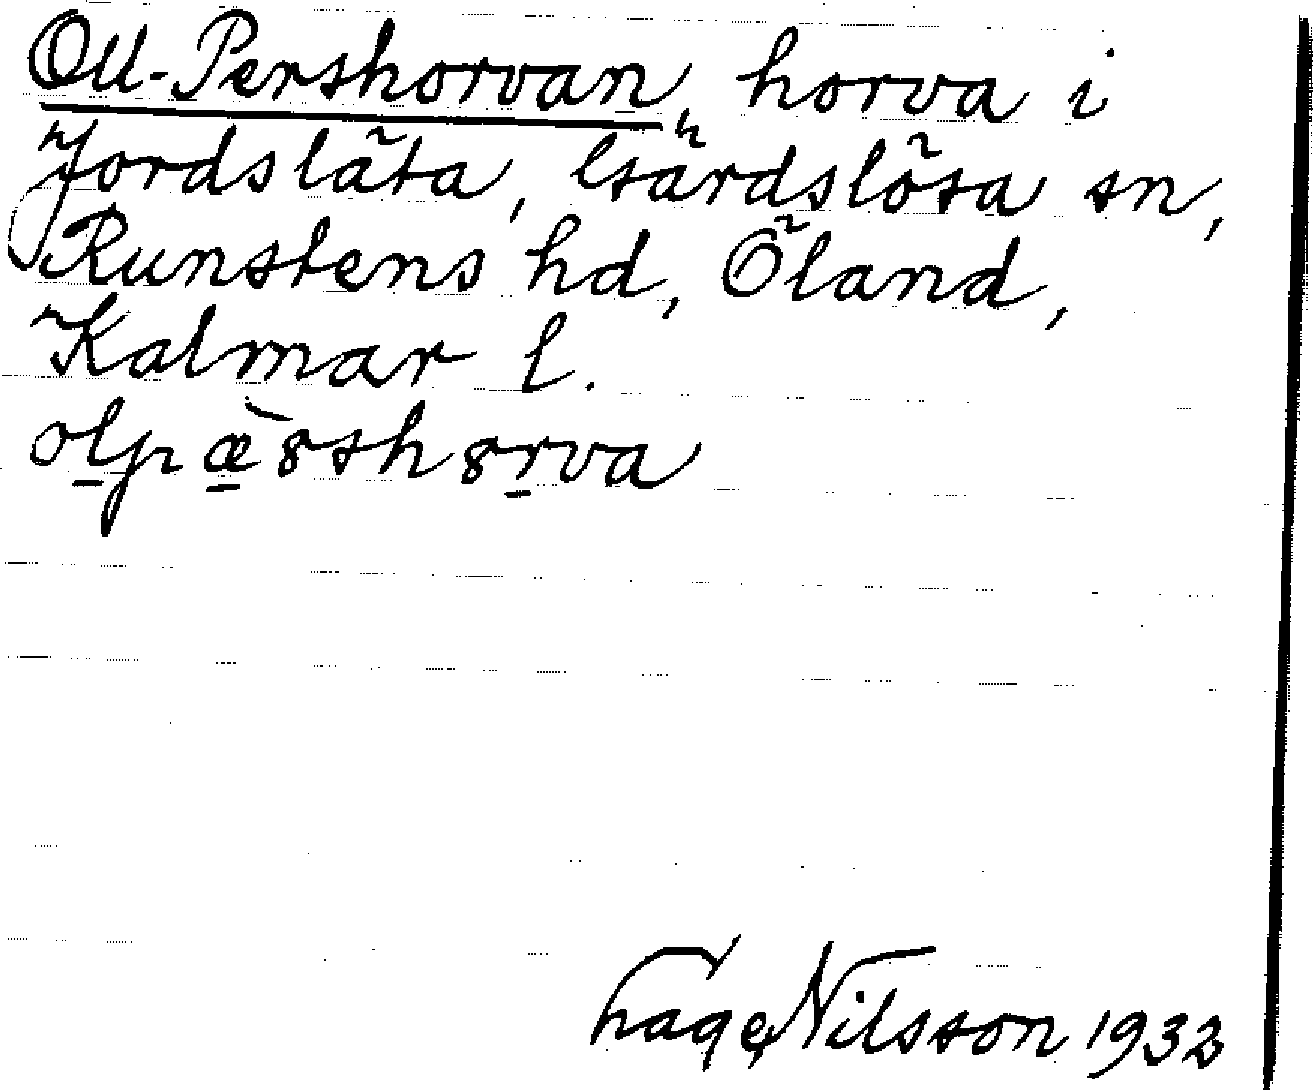 Oll-Pershorvan, horva i
Jordsläta, Gärdslösa sn,
Runstens hd, Öland,
Kalmar l.
Hage Nilsson 1932